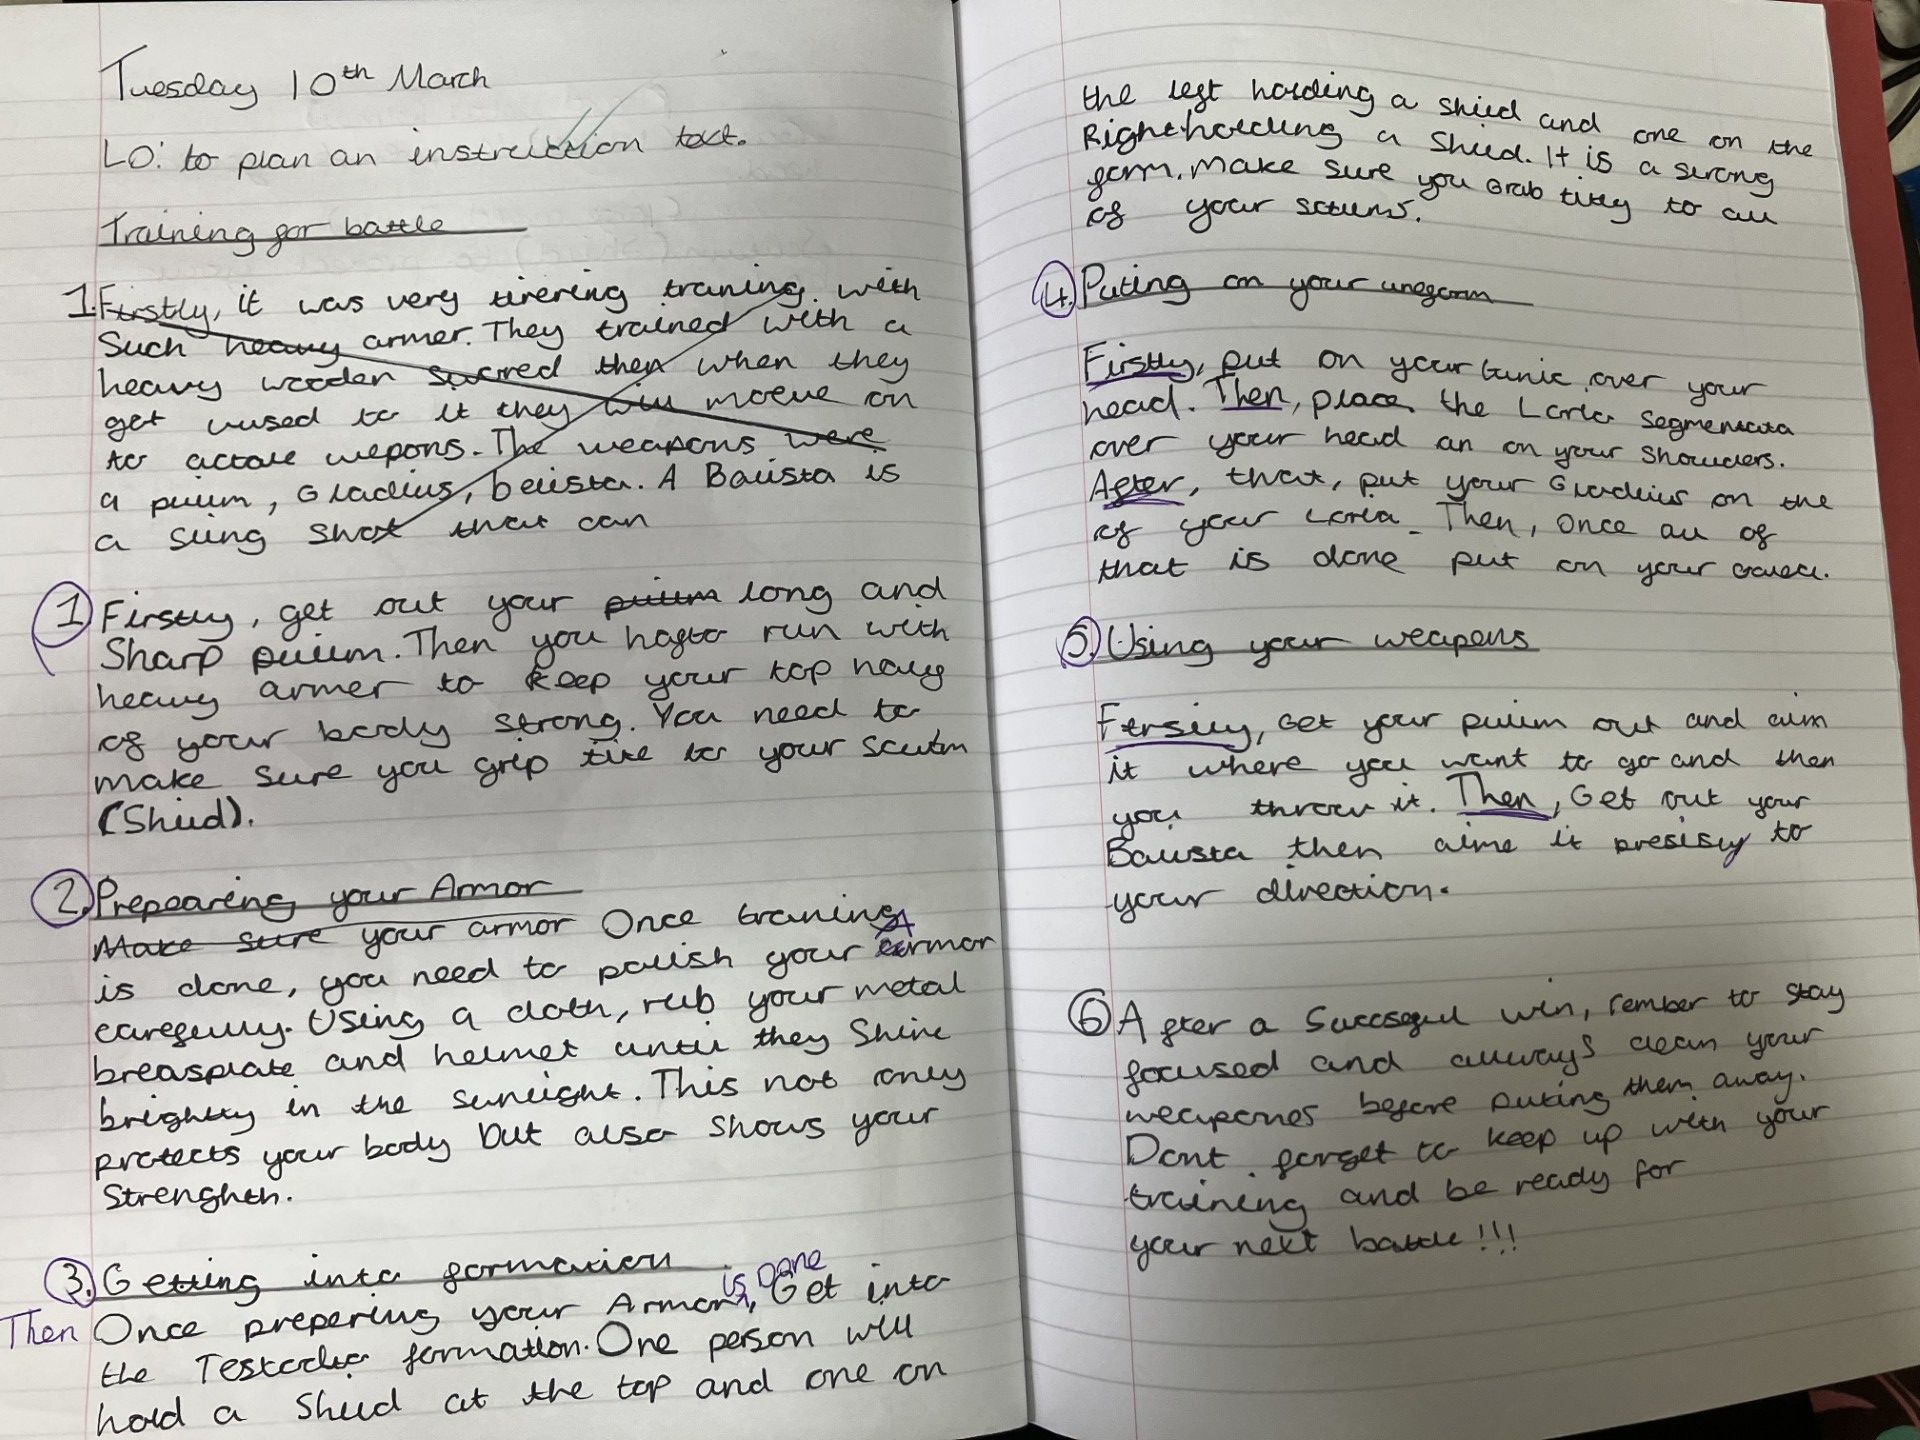 Tuesday 10th March
LO: to plan an instruction text.
Training for battle
1. Firstly, it was very tirering traning with
Such heavy armer. They trained with a
heavy wooden sworred then when they
get uused to it they will moeve on
to actore wepons. The weapons were
a pilum, Gladius, belista. A Balista is
a sling shot that can
1 Firstly, get out your pilum long and
Sharp pilum. Then you hafto run with
heavy armer to keep your top halg
of your body strong. You need to
make sure you grip tite to your scutm
(Shild).
2. Prepearing your Armor
Make sure your armor Once traning
is done, you need to polish your Armor
carefully. Using a cloth, rub your metal
breasplate and helmet until they Shine
brightly in the sunlight. This not only
protects your body but also shows your
Strenghth.
3. Getting into formation
Then Once prepering your Armor is Done, Get into
the Testudo formation. One person will
hold a Shild at the top and one on
the left holding a shild and one on the
Right holding a Shild. It is a strong
form. Make sure you Grab titly to all
of your sctums.
4. Puting on your unegorm
Firstly, put on your tunic over your
head. Then, place the Loria segmentata
over your head an on your Shoulders.
After, that, put your Gladius on the
of your Loria. Then, Once all of
that is done put on your Galea.
5. Using your weapons
Fersily, Get your pilum out and aim
it where you want to go and then
you throw it. Then, Get out your
Balista then aime it presisly to
your direction.
6 After a Succsegul win, rember to stay
focused and allways clean your
weapones before puting them away.
Dont forget to keep up with your
training and be ready for
your next battle!!!